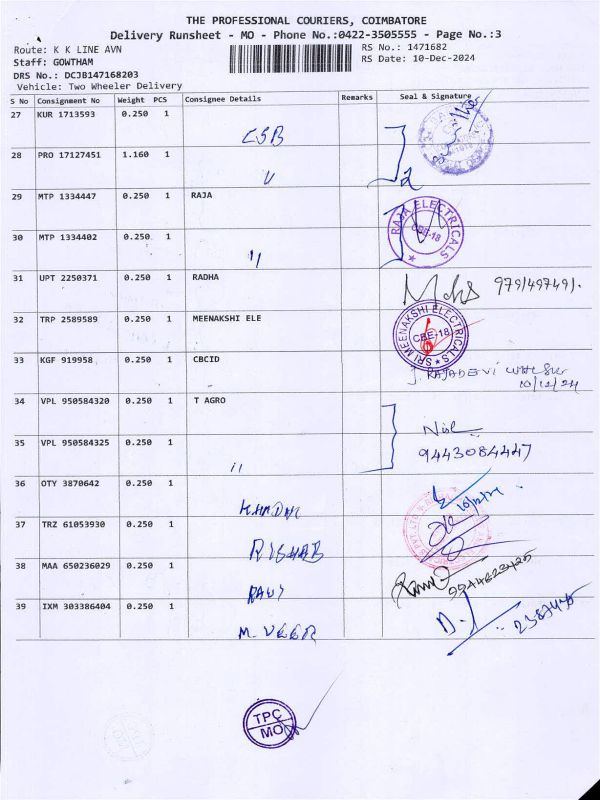 THE PROFESSIONAL COURIERS, COIMBATORE
Delivery Runsheet - MO - Phone No.:0422-3505555 - Page No.:3
Route: K K LINE AVN
RS No.: 1471682
Staff: GOWTHAM
RS Date: 10-Dec-2024
DRS No.: DCJB147168203
Vehicle: Two Wheeler Delivery
S No Consignment No Weight PCS Consignee Details Remarks Seal & Signature
27 KUR 1713593 0.250 1 CSB
28 PRO 17127451 1.160 1 2
29 MTP 1334447 0.250 1 RAJA RAJA ELECTRICALS CBE-18
30 MTP 1334402 0.250 1 "
31 UPT 2250371 0.250 1 RADHA
32 TRP 2589589 0.250 1 MEENAKSHI ELE SRI MEENAKSHI ELECTRICALS CBE-18
33 KGF 919958 0.250 1 CBCID J. RAJADEVI
10/12/24
34 VPL 950584320 0.250 1 T AGRO
9443084447
35 VPL 950584325 0.250 1 "
36 OTY 3870642 0.250 1
37 TRZ 61053930 0.250 1 RISHAB
38 MAA 650236029 0.250 1 RAVI
39 IXM 303386404 0.250 1 M. VEER
TPC
MO